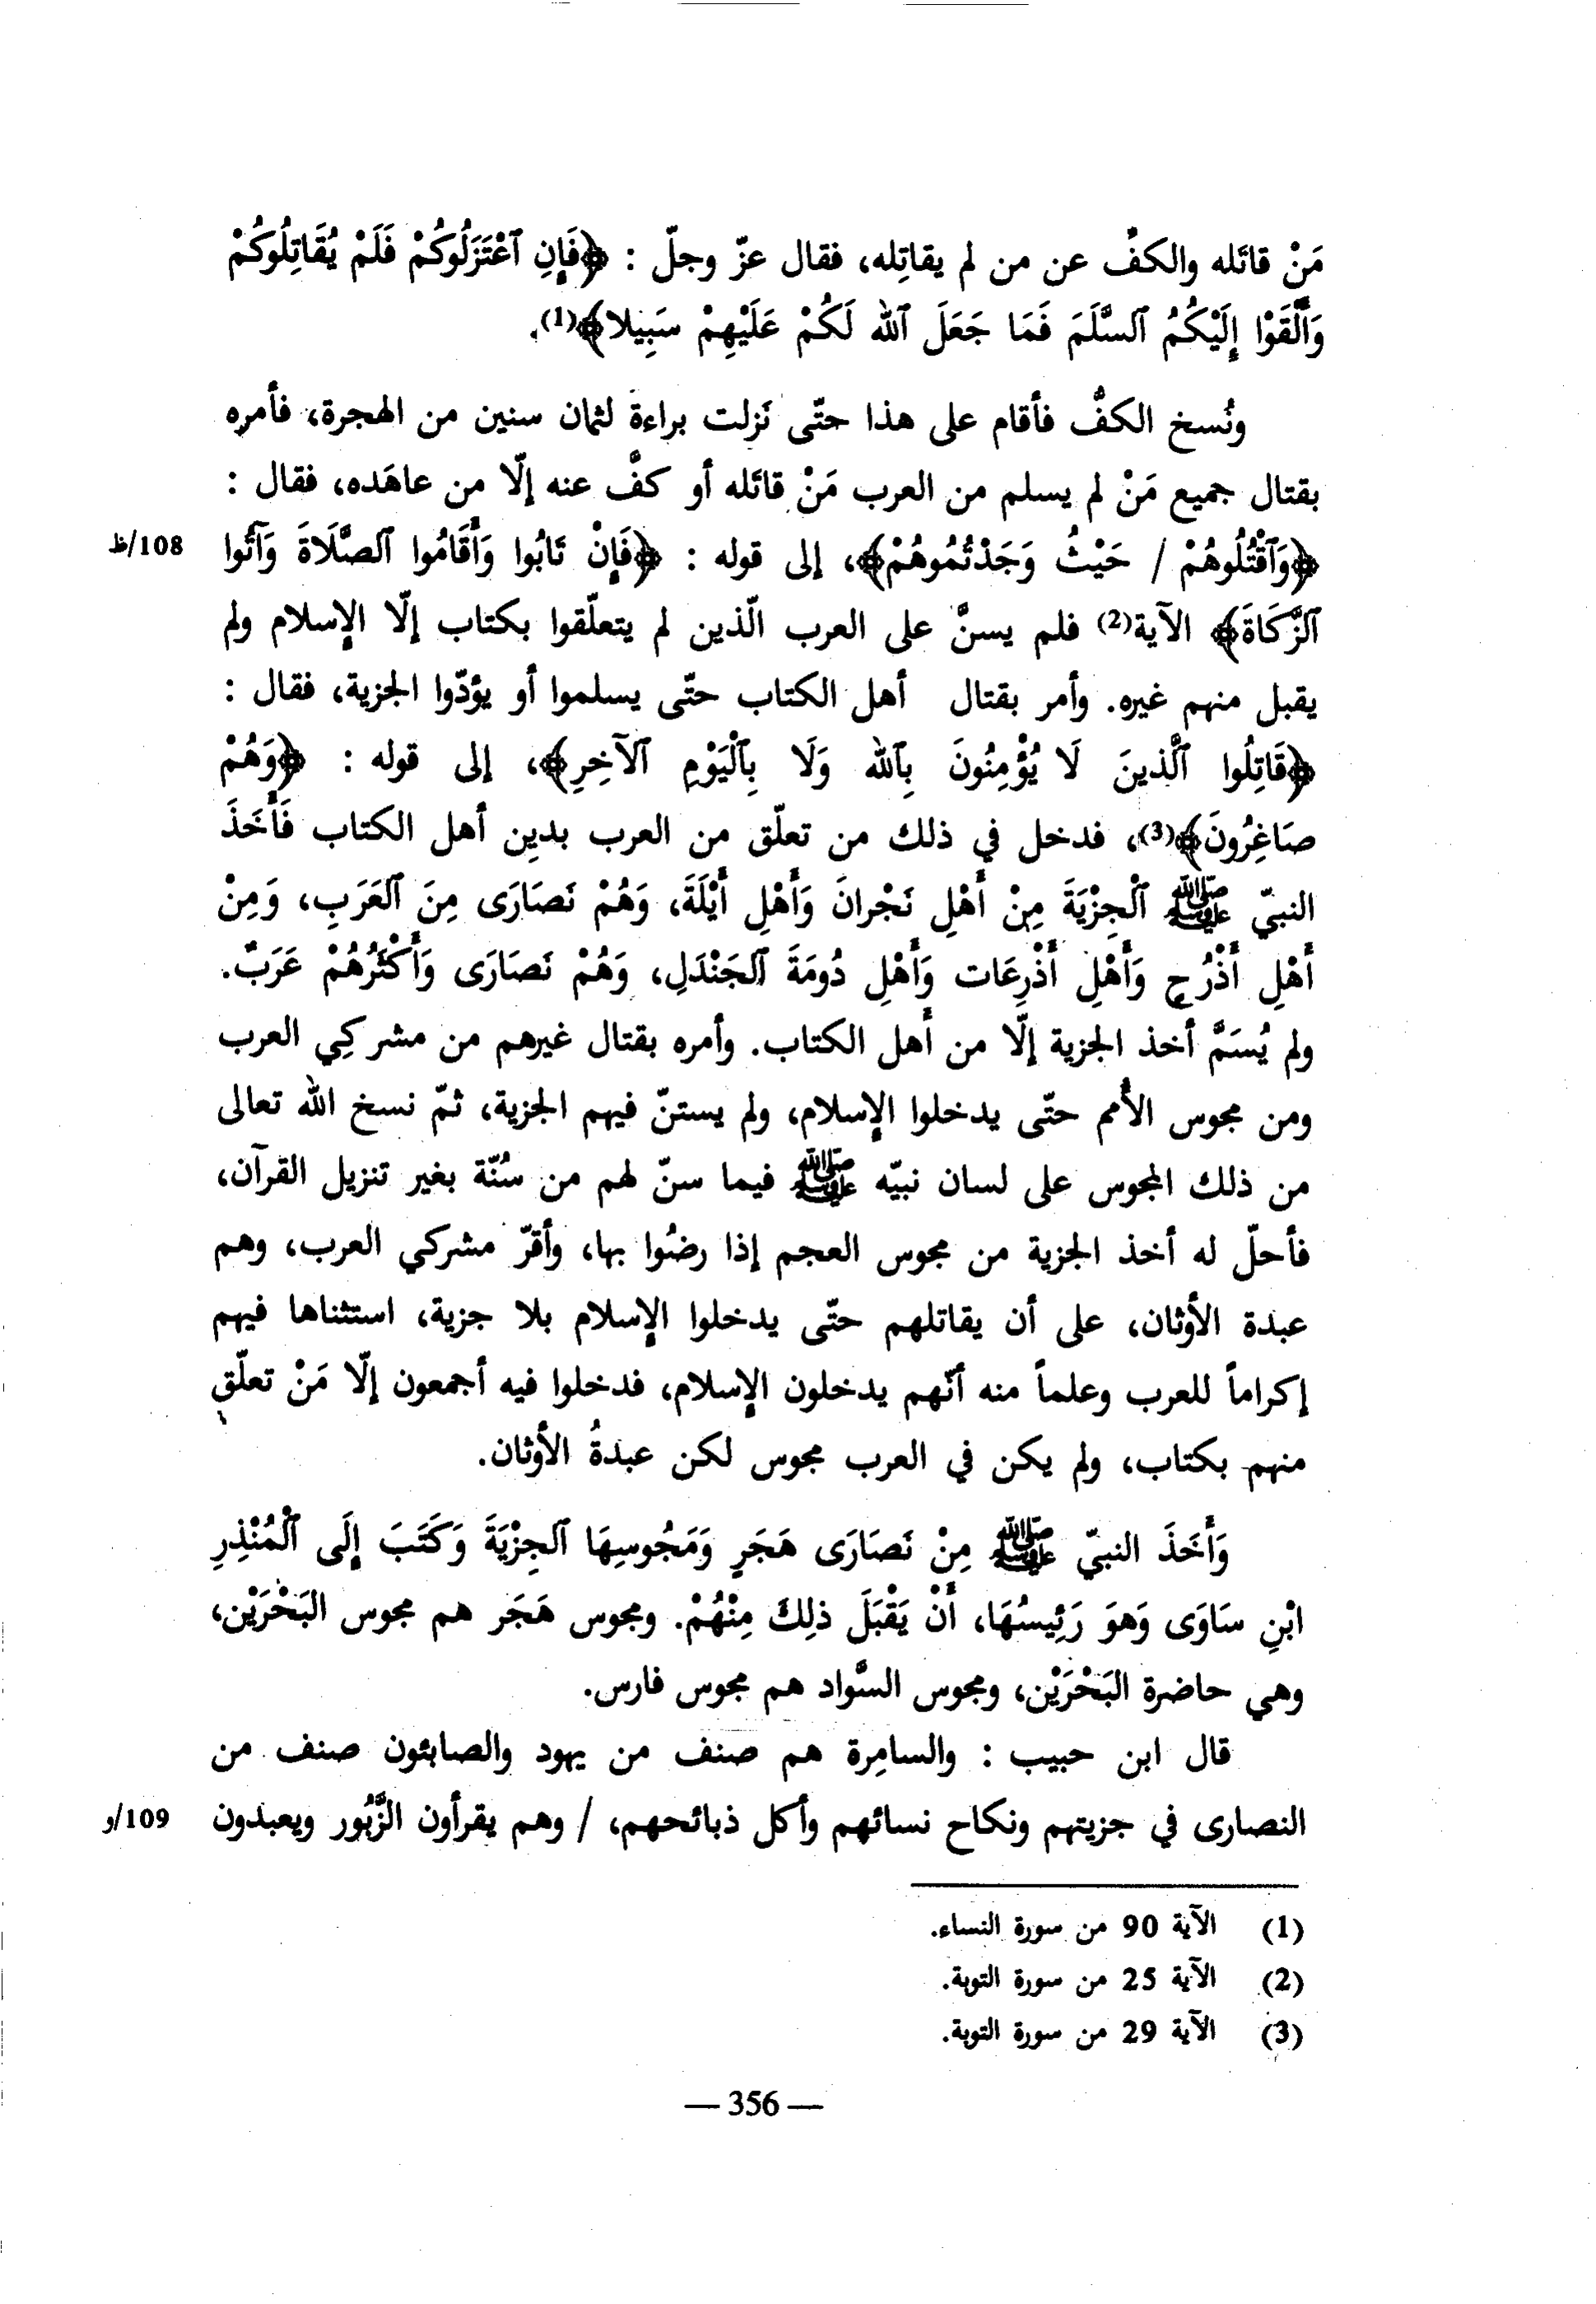 مَنْ قاتَله والكفُّ عن من لم يقاتِله، فقال عزّ وجلّ : ﴿فَإِنِ ٱعْتَزَلُوكُمْ فَلَمْ يُقَاتِلُوكُمْ
وَأَلْقَوْا إِلَيْكُمُ ٱلسَّلَمَ فَمَا جَعَلَ ٱلله لَكُمْ عَلَيْهِمْ سَبِيلا﴾(1).
ونُسخ الكفُّ فأقام على هذا حتّى نَزلت براءة لثمان سنين من الهجرة، فأمره
بقتال جميع مَنْ لم يسلم من العرب مَنْ قاتَله أو كفَّ عنه إلّا من عاهَده، فقال :
﴿وَٱقْتُلُوهُمْ / حَيْثُ وَجَدْتُمُوهُمْ﴾، إلى قوله : ﴿فَإِنْ تَابُوا وَأَقَامُوا ٱلصَّلَاةَ وَآتَوا
108/ظ
ٱلزَّكَاةَ﴾ الآية(2) فلم يسنَّ على العرب الّذين لم يتعلّقوا بكتاب إلّا الإسلام ولم
يقبل منهم غيره. وأمر بقتال أهل الكتاب حتّى يسلموا أو يؤدّوا الجزية، فقال :
﴿قَاتِلُوا ٱلَّذِينَ لَا يُؤْمِنُونَ بِٱلله وَلَا بِٱلْيَوْمِ ٱلآخِرِ﴾، إلى قوله : ﴿وَهُمْ
صَاغِرُونَ﴾(3)، فدخل في ذلك من تعلّق من العرب بدين أهل الكتاب فَأَخَذَ
النبيّ ﷺ ٱلْجِزْيَةَ مِنْ أَهْلِ نَجْرانَ وَأَهْلِ أَيْلَةَ، وَهُمْ نَصَارَى مِنَ ٱلعَرَبِ، وَمِنْ
أَهْلِ أَذْرُحٍ وَأَهْلِ أَذْرِعَات وَأَهْلِ دُومَةَ ٱلجَنْدَلِ، وَهُمْ نَصَارَى وَأَكْثَرُهُمْ عَرَبٌ.
ولم يُسَمَّ أخذ الجزية إلّا من أهل الكتاب. وأمره بقتال غيرهم من مشركِي العرب
ومن مجوس الأُمم حتّى يدخلوا الإسلام، ولم يستنّ فيهم الجزية، ثمّ نسخ الله تعالى
من ذلك المجوس على لسان نبيّه ﷺ فيما سنّ لهم من سُنّة بغير تنزيل القرآن،
فأحلّ له أخذ الجزية من مجوس العجم إذا رضُوا بها، وأقرّ مشركي العرب، وهم
عبدة الأوثان، على أن يقاتلهم حتّى يدخلوا الإسلام بلا جزية، استثناها فيهم
إكراماً للعرب وعلماً منه أنّهم يدخلون الإسلام، فدخلوا فيه أجمعون إلّا مَنْ تعلّق
منهم بكتاب، ولم يكن في العرب مجوس لكن عبدةُ الأوثان.
وَأَخَذَ النبيّ ﷺ مِنْ نَصَارَى هَجَرٍ وَمَجُوسِهَا ٱلجِزْيَةَ وَكَتَبَ إِلَى ٱلْمُنْذِرِ
ابْنِ سَاوَى وَهوَ رَئِيسُهَا، أَنْ يَقْبَلَ ذلِكَ مِنْهُمْ. ومجوس هَجَر هم مجوس البَحْرَيْن،
وهي حاضرة البَحْرَيْن، ومجوس السَّواد هم مجوس فارس.
قال ابن حبيب : والسامِرة هم صنف من يهود والصابئون صنف من
النصارى في جزيتهم ونكاح نسائهم وأكل ذبائحهم، / وهم يقرأون الزَّبُور ويعبدون
109/و
(1) الآية 90 من سورة النساء.
(2) الآية 25 من سورة التوبة.
(3) الآية 29 من سورة التوبة.
— 356 —